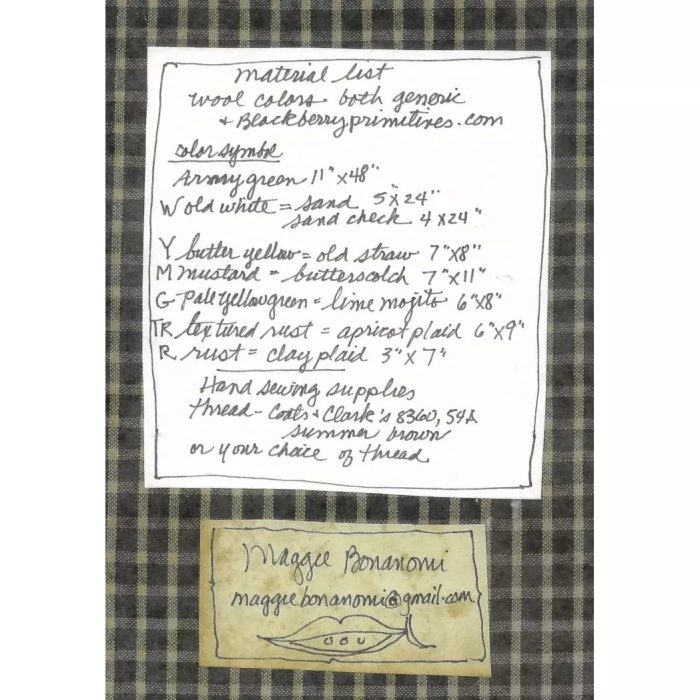 Material list
Wool colors both generic
+ Blackberryprimitives.com
color symbol
Army green 11"x48"
W old white = sand 5"x24"
sand check 4x24"
Y butter yellow = old straw 7"x8"
M mustard = butterscotch 7"x11"
G - Pale yellow green = lime mojito 6"x8"
TR textured rust = apricot plaid 6"x9"
R rust = clay plaid 3"x7"
Hand sewing supplies
thread - Coats + Clark's 8360, 54A
summer brown
or your choice of thread
Maggie Bonanomi
maggiebonanomi@gmail.com